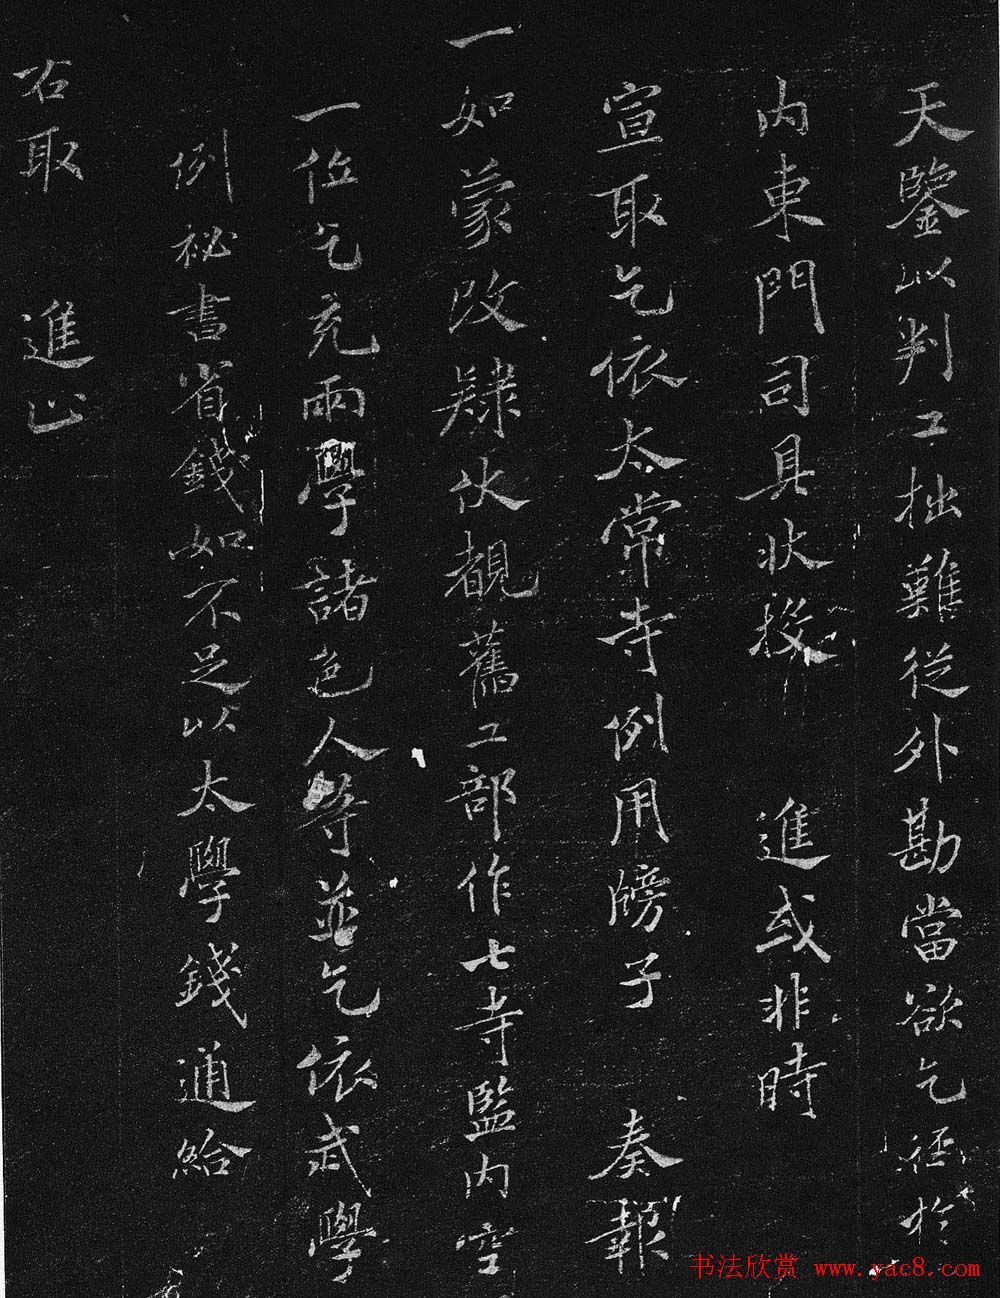 天鑒以判工拙難從外勘當欲乞徑於
内東門司具狀投 進或非時
宣取乞依太常寺例用牓子 奏報
一如蒙改肄伏覩舊工部作七寺監内空
一位乞充兩學諸色人等並乞依武學
例祕書省錢如不足以太學錢通給
右取 進止
书法欣赏 www.yac8.com